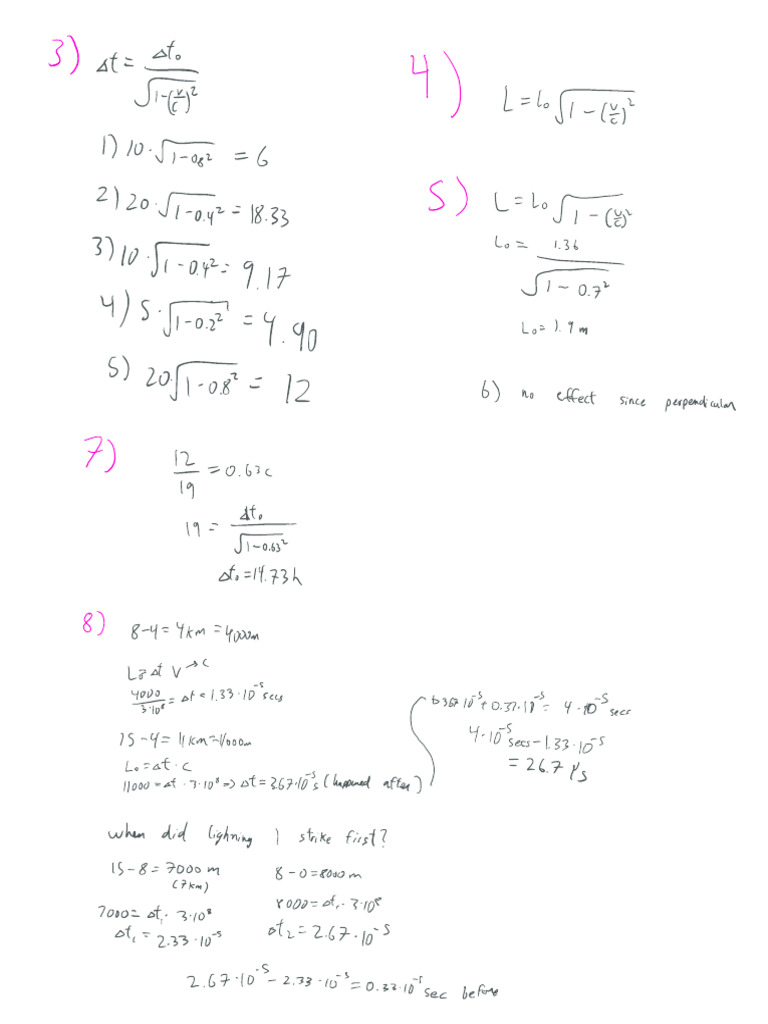 3) Δt = Δt₀ / √1-(v/c)²
1) 10·√1-0.8² = 6
2) 20·√1-0.4² = 18.33
3) 10·√1-0.4² = 9.17
4) 5·√1-0.2² = 4.90
5) 20·√1-0.8² = 12
4) L = L₀√1-(v/c)²
5) L = L₀√1-(v/c)²
L₀ = 1.36 / √1-0.7²
L₀ = 1.9 m
6) no effect since perpendicular
7) 12/19 = 0.63c
19 = Δt₀ / √1-0.63²
Δt₀ = 14.73h
8) 8-4 = 4km = 4000m
L₀ = Δt V → c
4000/3·10⁸ = Δt = 1.33·10⁻⁵ secs
15-4 = 11km = 11000m
L₀ = Δt·c
11000 = Δt·3·10⁸ => Δt = 3.67·10⁻⁵s (happened after)
3.67·10⁻⁵ + 0.33·10⁻⁵ = 4·10⁻⁵ secs
4·10⁻⁵ secs - 1.33·10⁻⁵
= 26.7 μs
when did lighning 1 strike first?
15-8 = 7000 m
(7km)
7000 = Δt₁·3·10⁸
Δt₁ = 2.33·10⁻⁵
8-0 = 8000m
8000 = Δt₁·3·10⁸
Δt₂ = 2.67·10⁻⁵
2.67·10⁻⁵ - 2.33·10⁻⁵ = 0.33·10⁻⁵ sec before